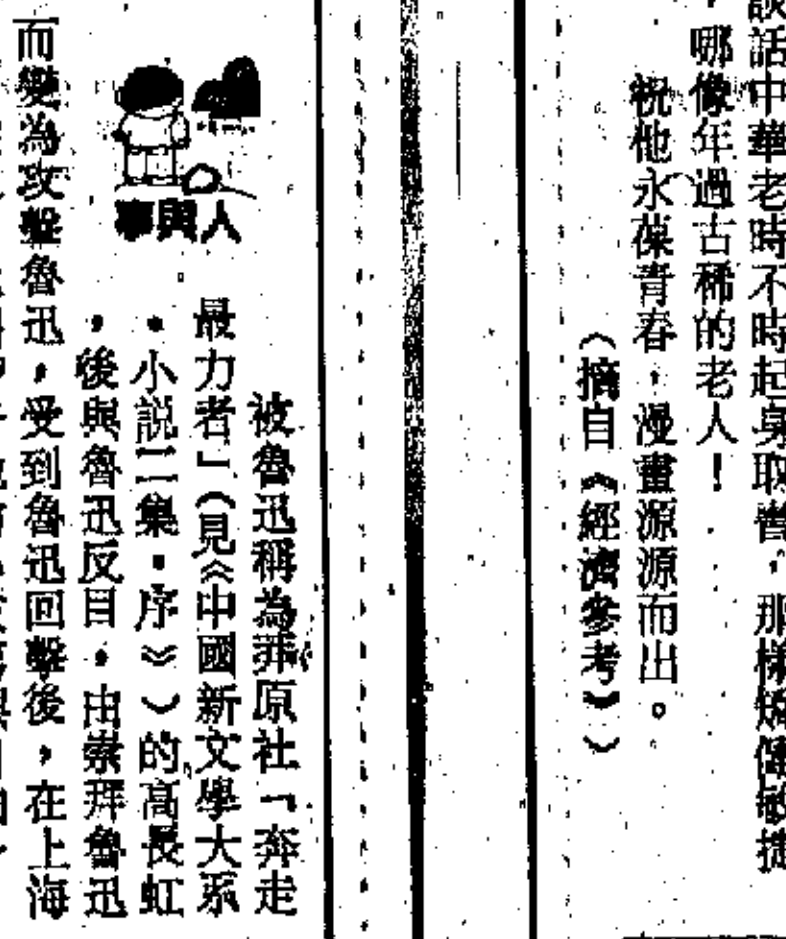 談話中華老時不時起身取書，那樣矯健敏捷
，哪像年過古稀的老人！
祝他永葆青春，漫畫源源而出。
（摘自《經濟參考》）
人與事
被魯迅稱為莽原社「奔走
最力者」（見《中國新文學大系
·小説二集·序》）的高長虹
，後與魯迅反目，由崇拜魯迅
而變為攻擊魯迅，受到魯迅回擊後，在上海